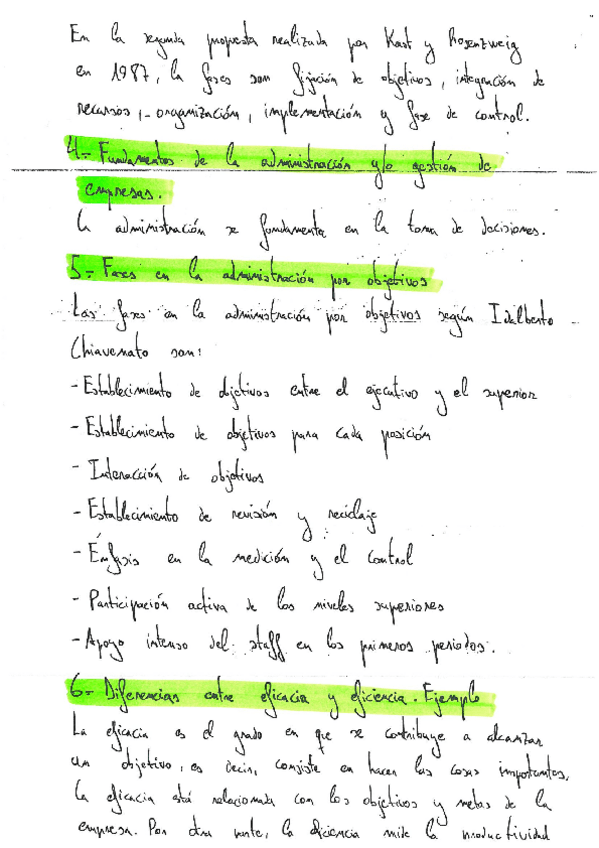 En la segunda propuesta realizada por Kast y Rosenzweig
en 1987, la fases son fijación de objetivos, integración de
recursos, - organización, implementación y fase de control.
4.- Fundamentos de la administración y/o gestión de
empresas.
La administración se fundamenta en la toma de decisiones.
5.- Fases en la administración por objetivos
Las fases en la administración por objetivos según Idalberto
Chiavenato son:
- Establecimiento de objetivos entre el ejecutivo y el superior
- Establecimiento de objetivos para cada posición
- Interacción de objetivos
- Establecimiento de revisión y reciclaje
- Énfasis en la medición y el control
- Participación activa de los niveles superiores
- Apoyo intenso del staff en los primeros periodos.
6.- Diferencias entre eficacia y eficiencia. Ejemplo
La eficacia es el grado en que se contribuye a alcanzar
un objetivo, es decir, consiste en hacer las cosas importantes,
la eficacia está relacionada con los objetivos y metas de la
empresa. Por otra parte, la eficiencia mide la productividad